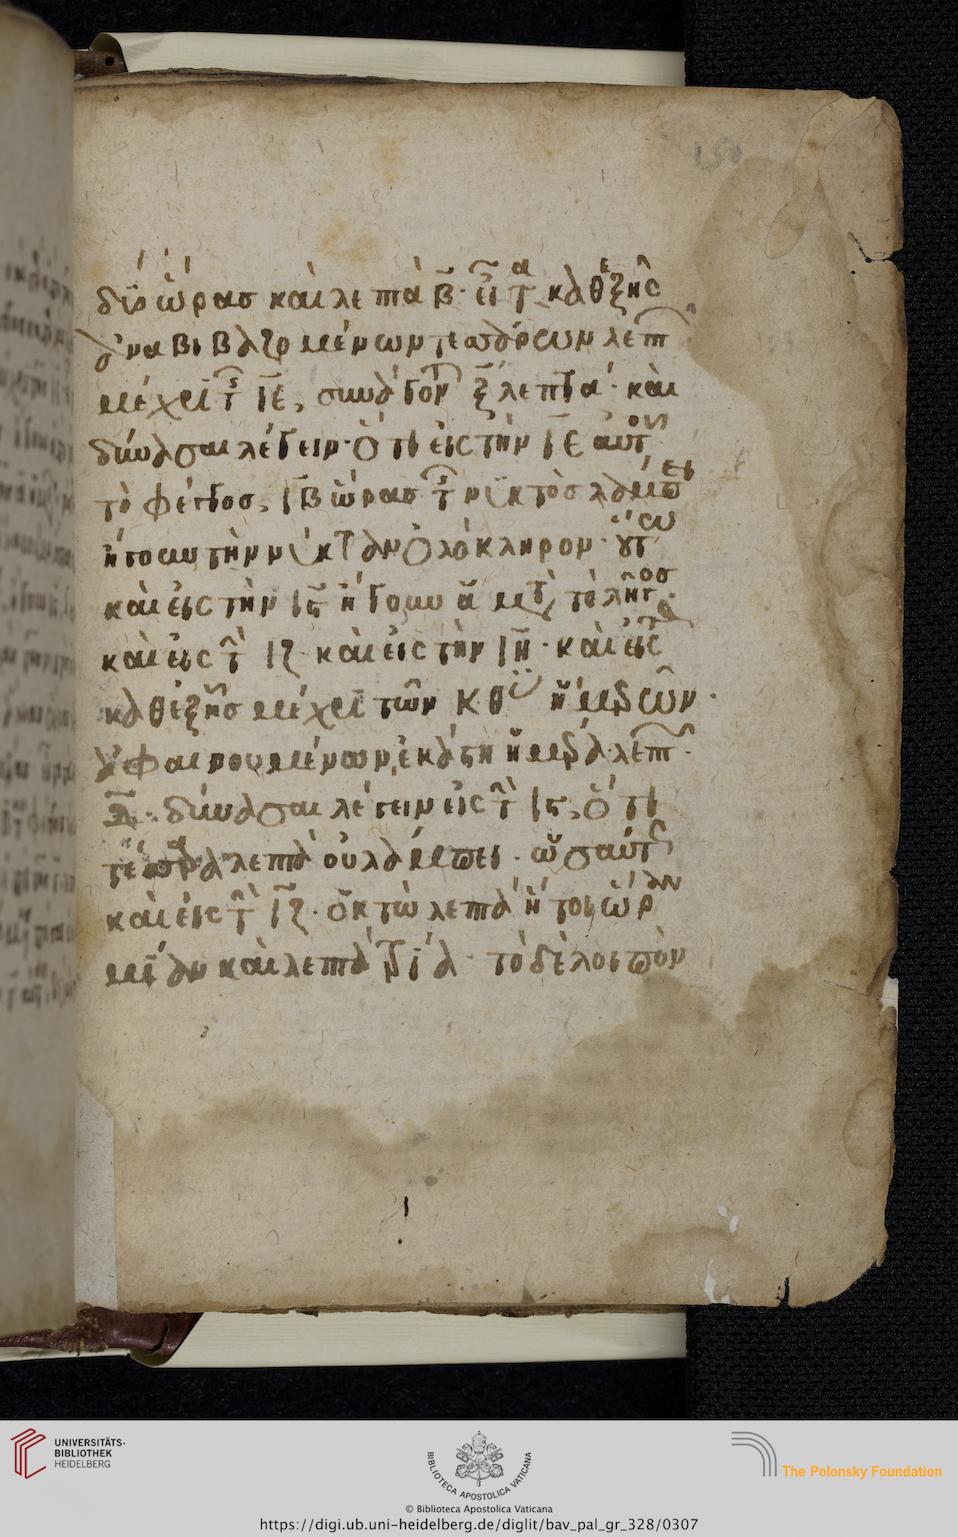 150
δύο ὥρας καὶ λεπτὰ β· εἶτα καθεξῆς
ἀναβιβαζομένων τεσσάρων λεπτ
μέχρι τ ιε, συνάγον ξ λεπτά· καὶ
δύνασαι λέγειν· ὅτι εἰς τὴν ιε αὐτ
τὸ φέγγος, ιβ ὥρας τ νυκτὸς λάμπει
ἤγουν τὴν νύκταν ὁλόκληρον· οὕτω
καὶ εἰς τὴν ις ἤγουν α μτ τὸ λῆγος·
καὶ εἰς τ ιζ καὶ εἰς τὴν ιη· καὶ εἰς
καθεξῆς μέχρι τῶν κθ ἡμερῶν·
ὑφαιρουμένων ἑκάστη ἡμέρα λεπτ·
δύνασαι λέγειν εἰς τ ις, ὅτι
τέσσαρα λεπτὰ οὐ λάμπει· ὡσαύτ
καὶ εἰς τ ιζ· ὀκτὼ λεπτὰ ἤτοι ὥραν
μίαν καὶ λεπτὰ τρία· τὸ δὲ λοιπὸν
UNIVERSITÄTS-
BIBLIOTHEK
HEIDELBERG
BIBLIOTECA APOSTOLICA VATICANA
The Polonsky Foundation
© Biblioteca Apostolica Vaticana
https://digi.ub.uni-heidelberg.de/diglit/bav_pal_gr_328/0307